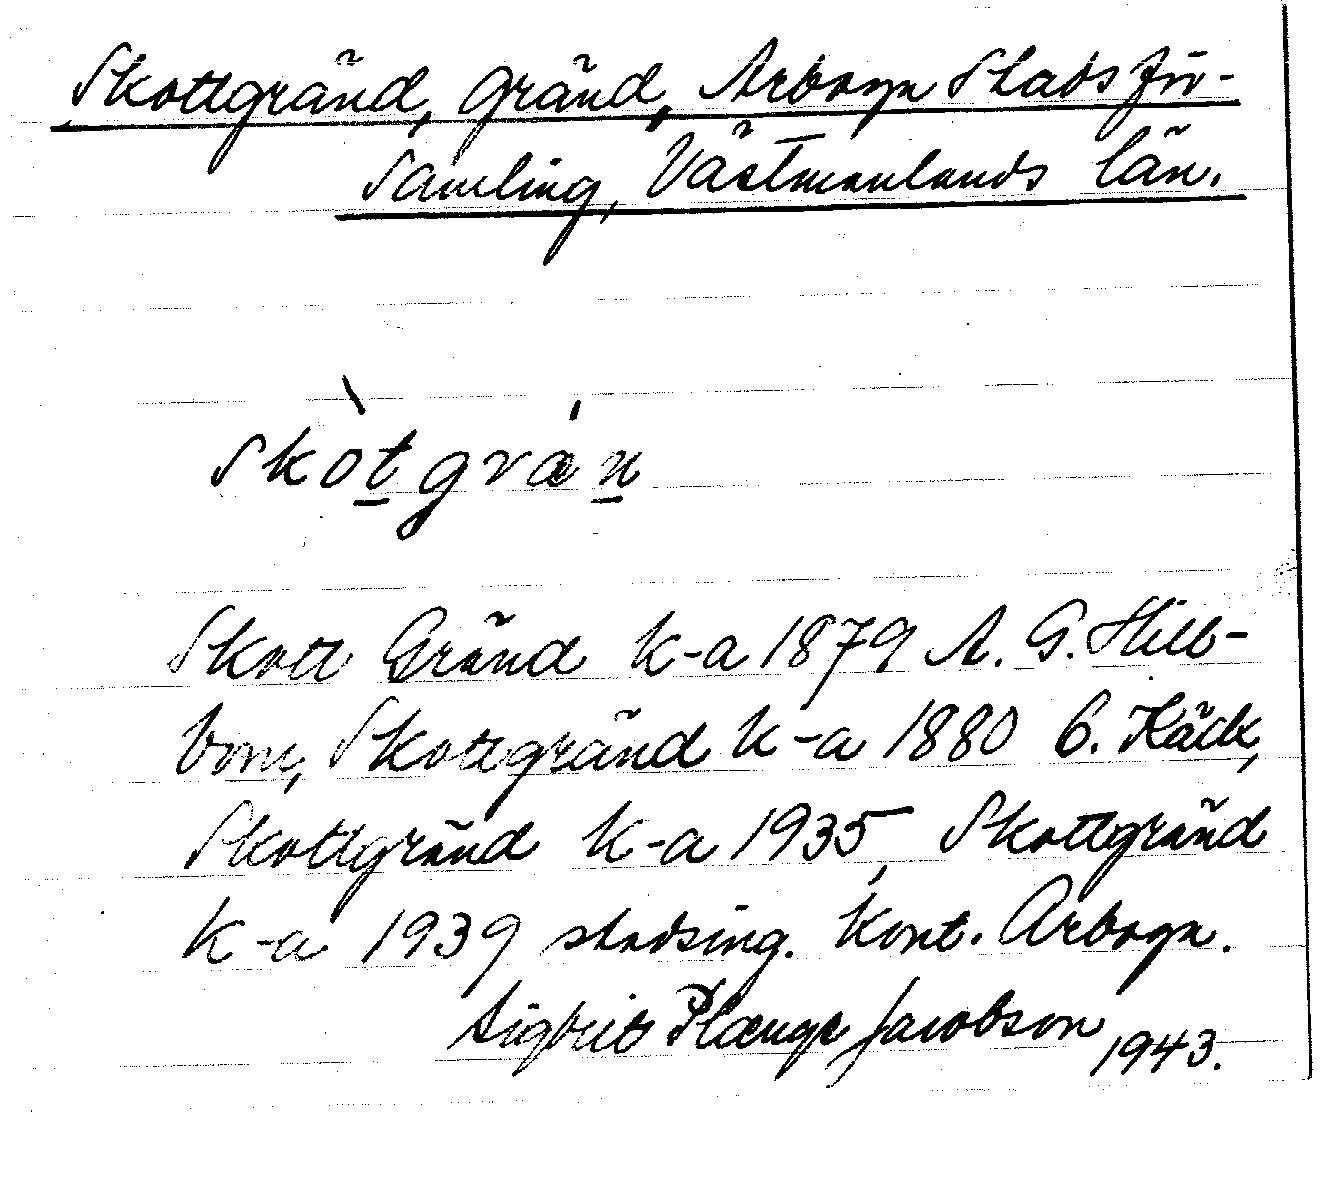 Skottgränd, Gränd, Arboga Stadsför-
samling, Västmanlands län.
skòtgrǽn
Skott Gränd k-a 1879 A. G. Hill-
bom, Skottgränd k-a 1880 C. Käck,
Skottgränd k-a 1935, Skottgränd
k-a 1939 stadsing. kont. Arboga.
Sigfrid Plænge Jacobson 1943.